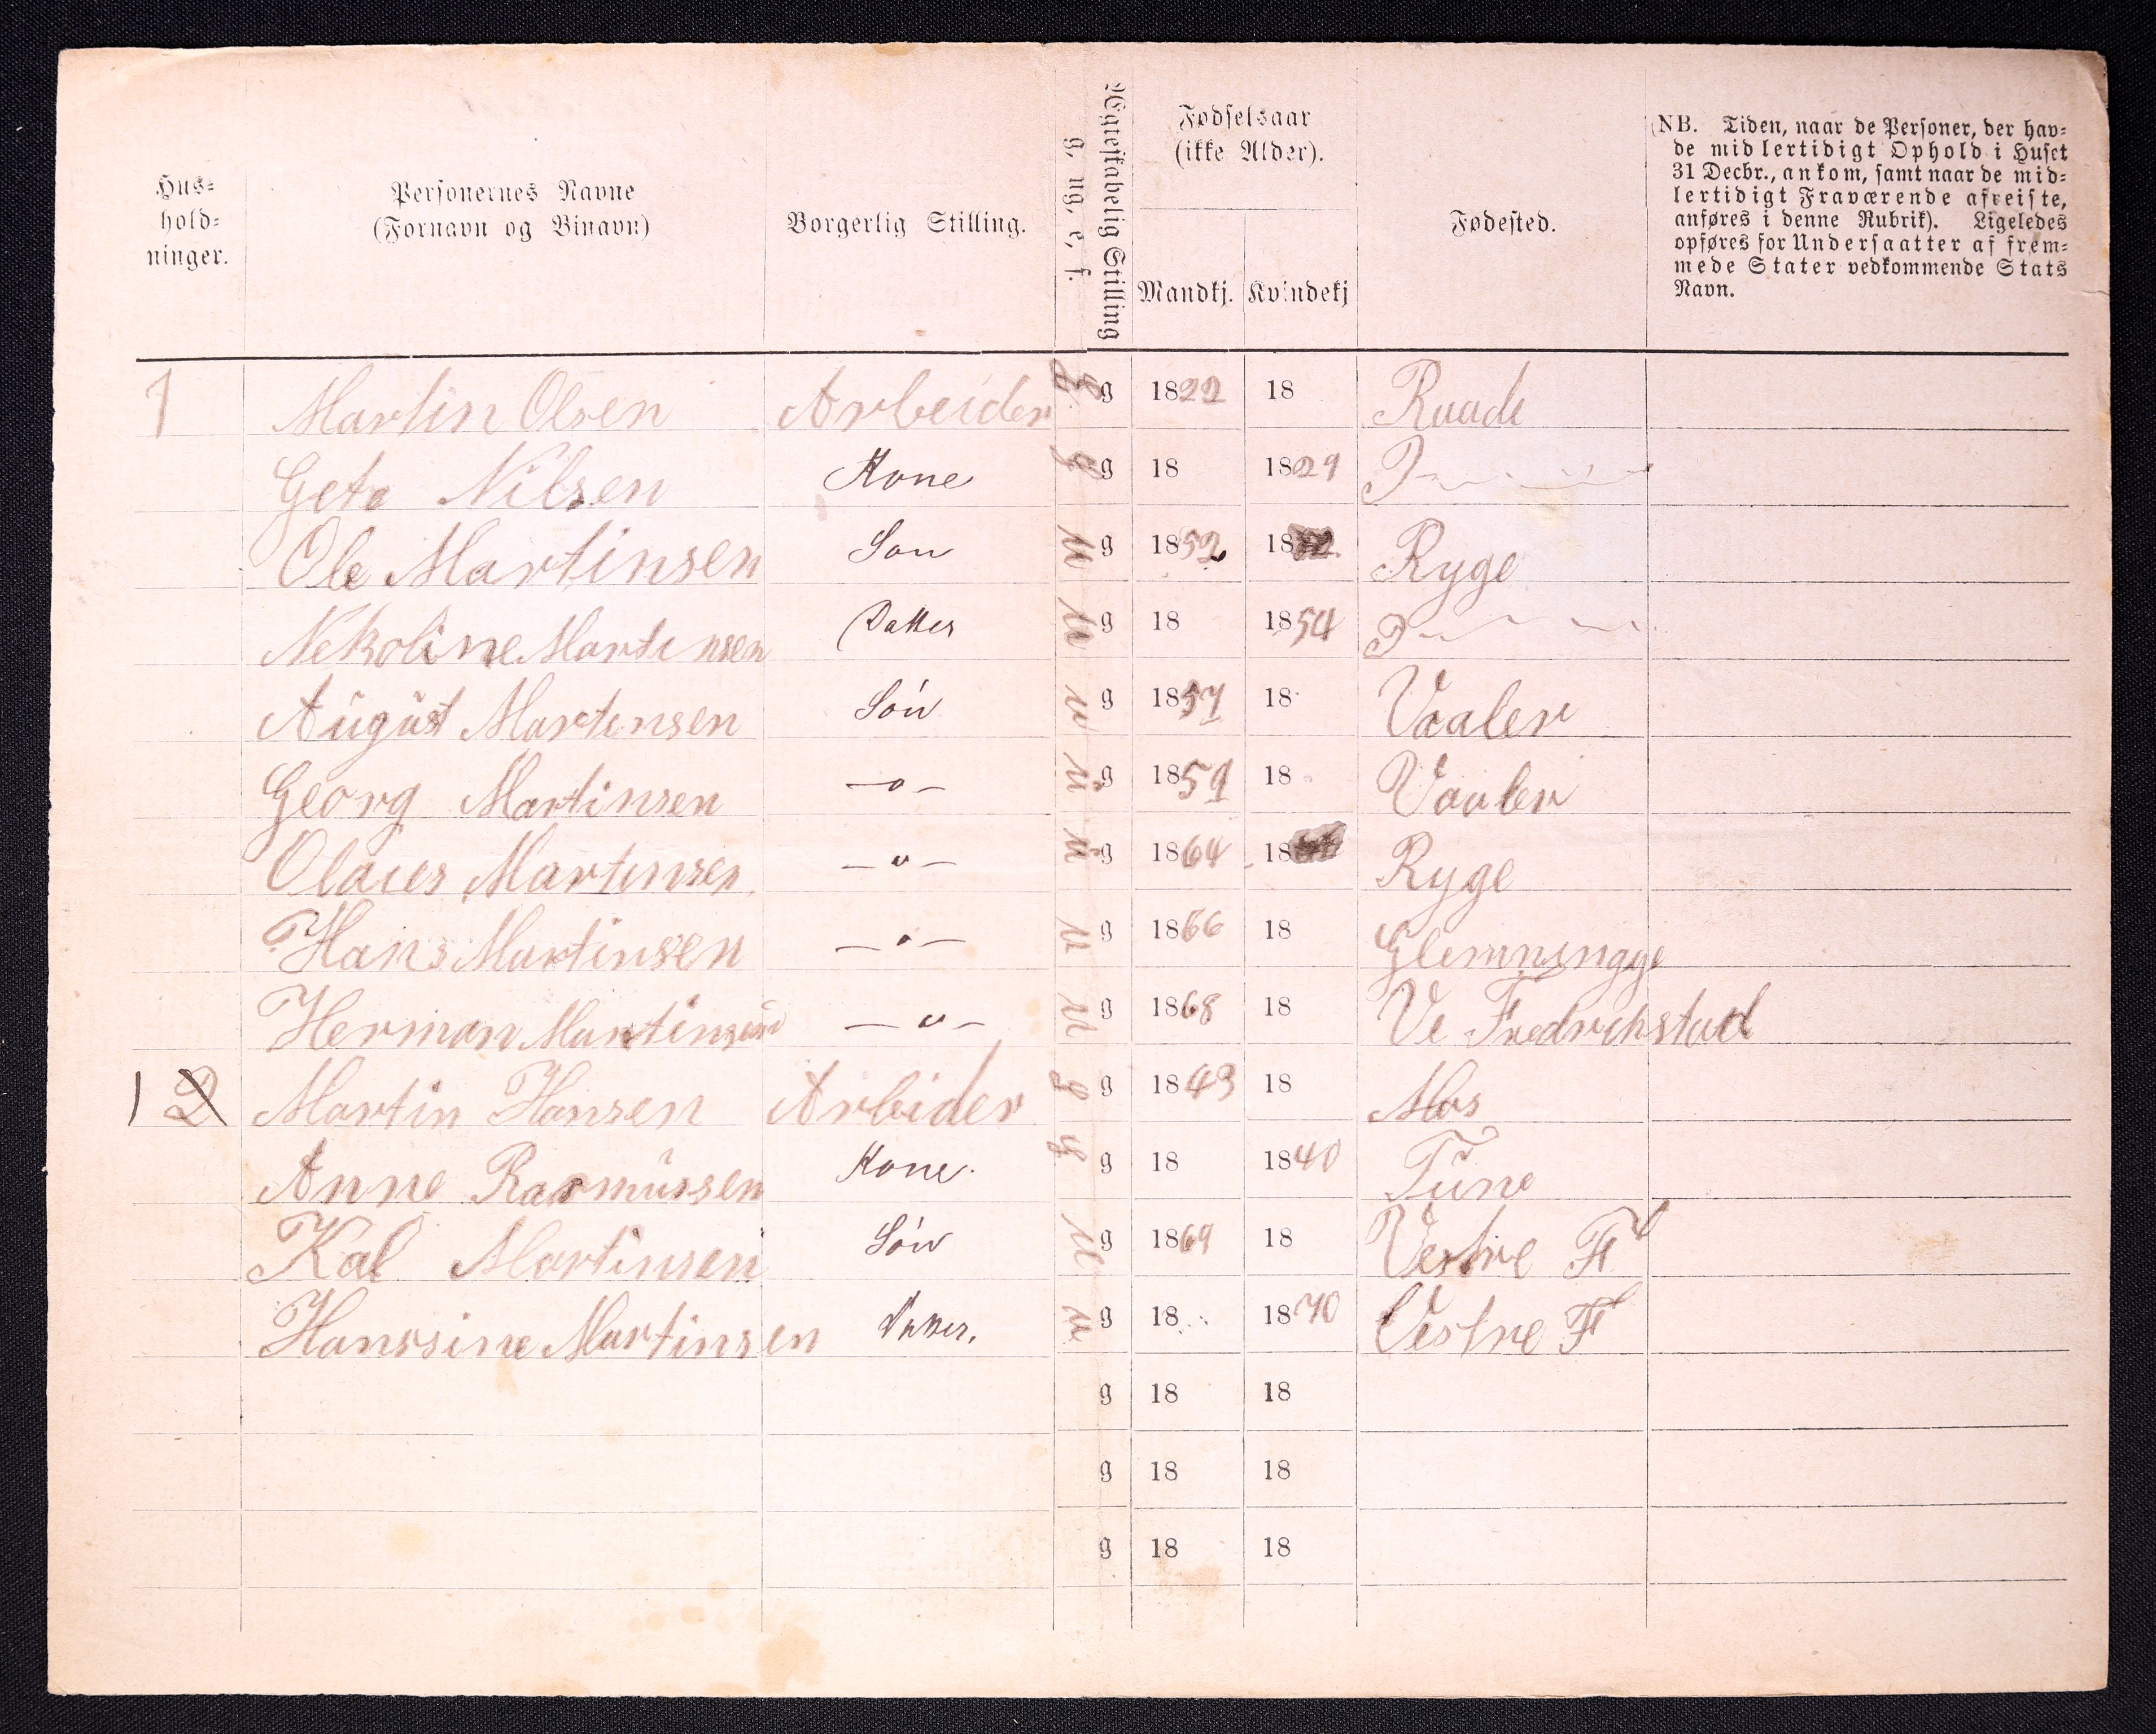 Hus-
hold-
ninger.
Personernes Navne
(Fornavn og Binavn)
Borgerlig Stilling.
Ægteskabelig Stilling
g. ug. e. f.
Fødselsaar
(ikke Alder).
Mandkj. Kvindekj
Fødested.
NB. Tiden, naar de Personer, der hav-
de midlertidigt Ophold i Huset
31 Decbr., ankom, samt naar de mid-
lertidigt Fraværende afreiste,
anføres i denne Rubrik). Ligeledes
opføres for Undersaatter af frem-
mede Stater vedkommende Stats
Navn.
1 Martin Olsen Arbeider g g 1822 18 Raade
Geta Nilsen Kone g g 18 1829
Ole Martinsen Søn u g 1852 18 Ryge
Nekoline Martinsen Datter u g 18 1854
August Martensen Søn u g 1857 18 Vaaler
Georg Martinsen —〃— u g 1859 18 Vaaler
Olaues Martensen —〃— u g 1864 18 Ryge
Hans Martinsen —〃— u g 1866 18 Glemningge
Herman Martinsen —〃— u g 1868 18 Ve Fredrekstad
1 2 Martin Hansen Arbider g g 1843 18 Mos
Anne Rasmussen Kone. g g 18 1840 Tune
Kal Martinsen Søn u g 1869 18 Vestre Fr
Hanssine Martinsen Datter. u g 18 1870 Vestre F
g 18 18
g 18 18
g 18 18